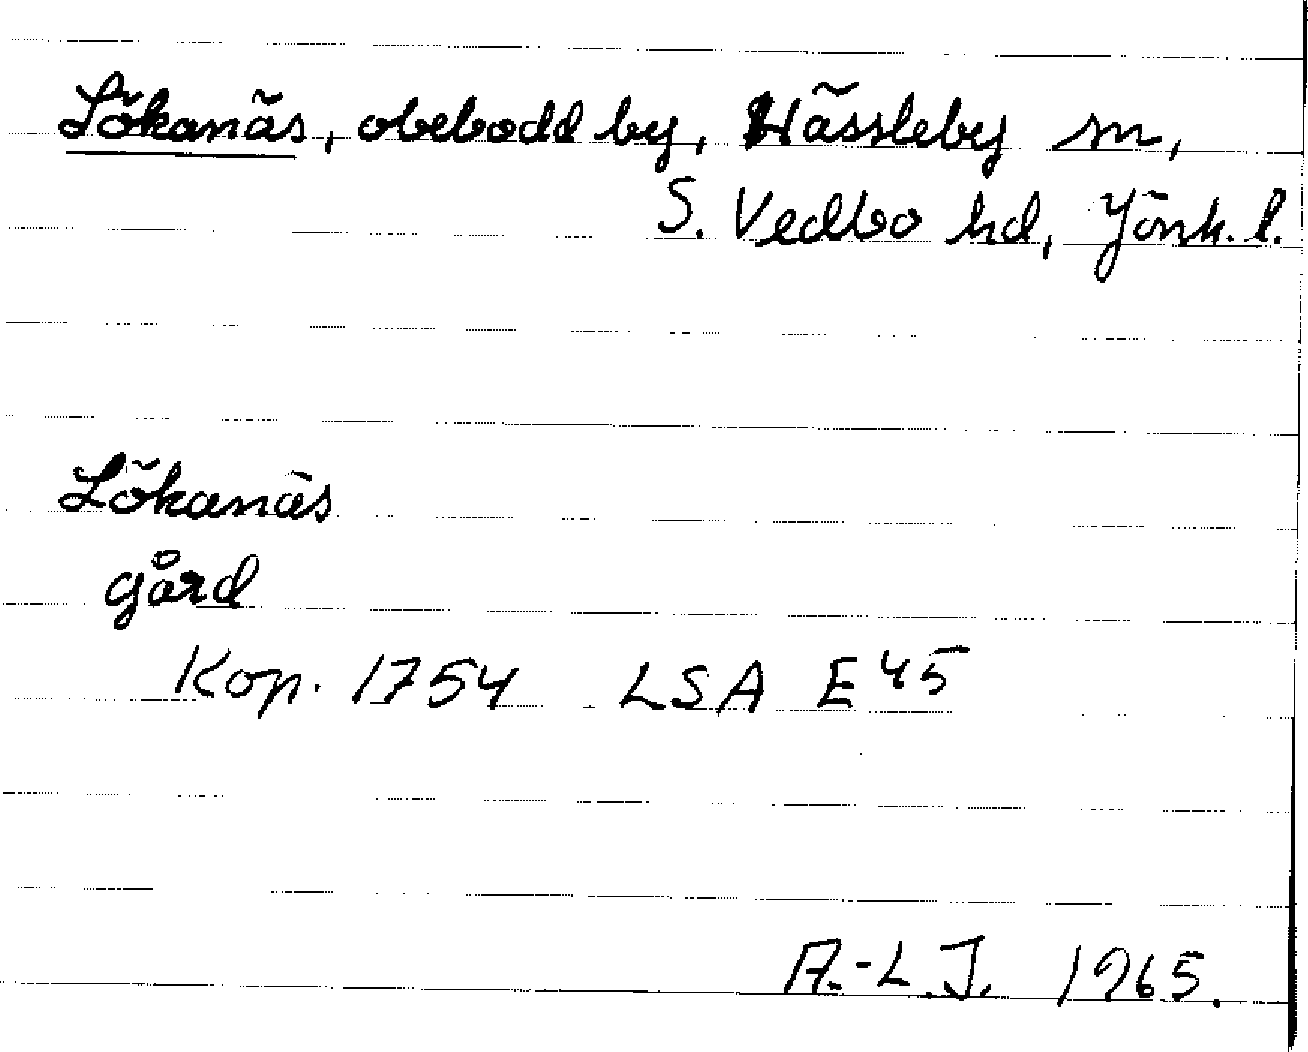 Lökanäs, obebodd by, Hässleby sn,
S. Vedbo hd, Jönk. l.
Lökanäs
gård
Kop. 1754 LSA E 45
A.-L.J. 1965.